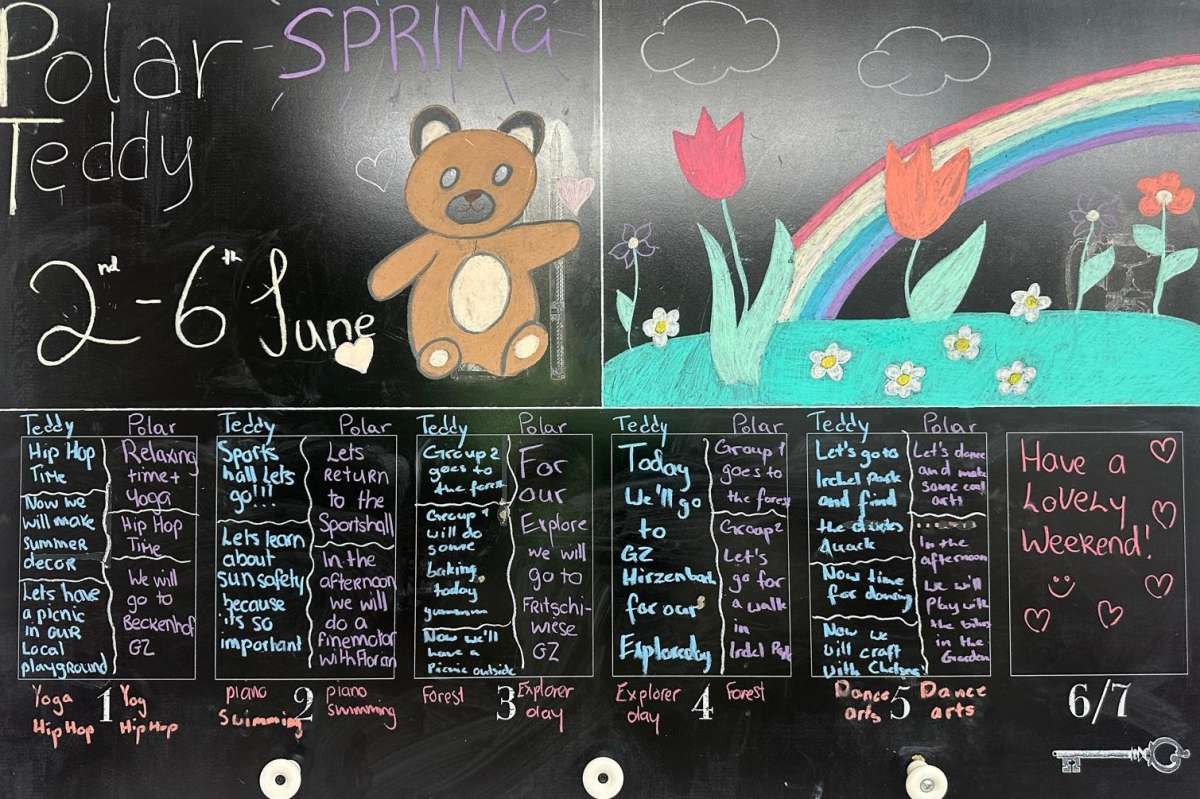 Polar
Teddy
SPRING
2nd - 6th June
Teddy
Hip Hop
Time
Now we
will make
summer
decor
Lets have
a picnic
in our
Local
playground
Polar
Relaxing
time +
Yoga
Hip Hop
Time
We will
go to
Beckenhof
GZ
Teddy
Sports
hall lets
go!!!
Lets learn
about
sunsafety
because
its so
important
Polar
Lets
return
to the
Sportshall
In the
afternoon
we will
do a
finemotor
with Florian
Teddy
Group 2
goes to
the forest
Group 1
will do
some
baking
today
Now we'll
have a
Picnic outside
Polar
For
our
Explore
we will
go to
Fritschi-
wiese
GZ
Teddy
Today
We'll go
to
GZ
Hirzenbach
for our
Explorerday
Polar
Group 1
goes to
the forest
Group 2
Let's
go for
a walk
in
Irchel Park
Teddy
Let's go to
Irchel Park
and find
the ducks
Quack
Now time
for dancing
Now we
will craft
with Chelsea
Polar
Let's dance
and make
some cool
art!
In the
afternoon
we will
Play with
the bikes
in the
Garden
Have a
Lovely
Weekend!
Yoga
Hip Hop
1
Yog
Hip Hop
piano
Swimming
2
piano
swimming
Forest
3
Explorer
day
Explorer
day
4
Forest
Dance
arts
5
Dance
arts
6/7